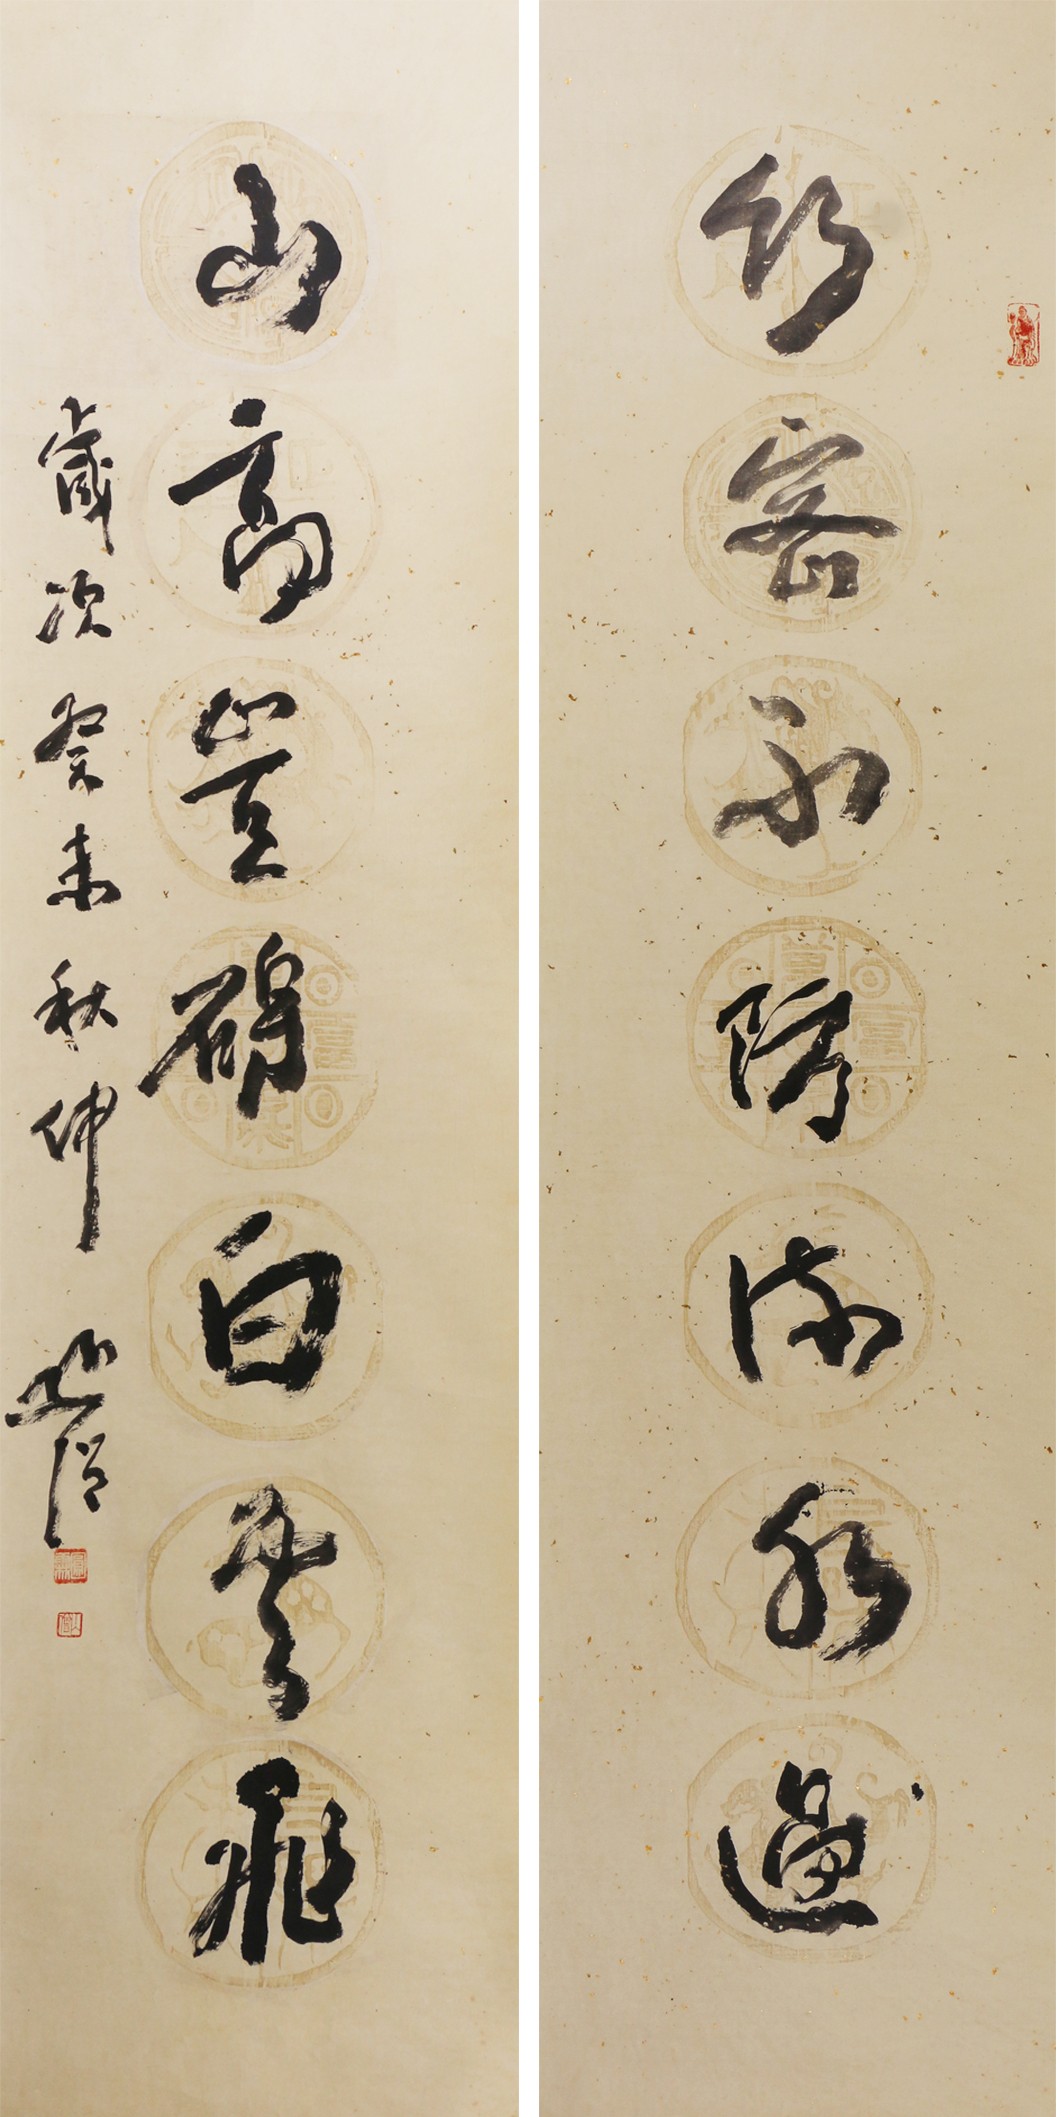 竹密不防流水過
山高豈礙白雲飛
歲次癸未秋仲